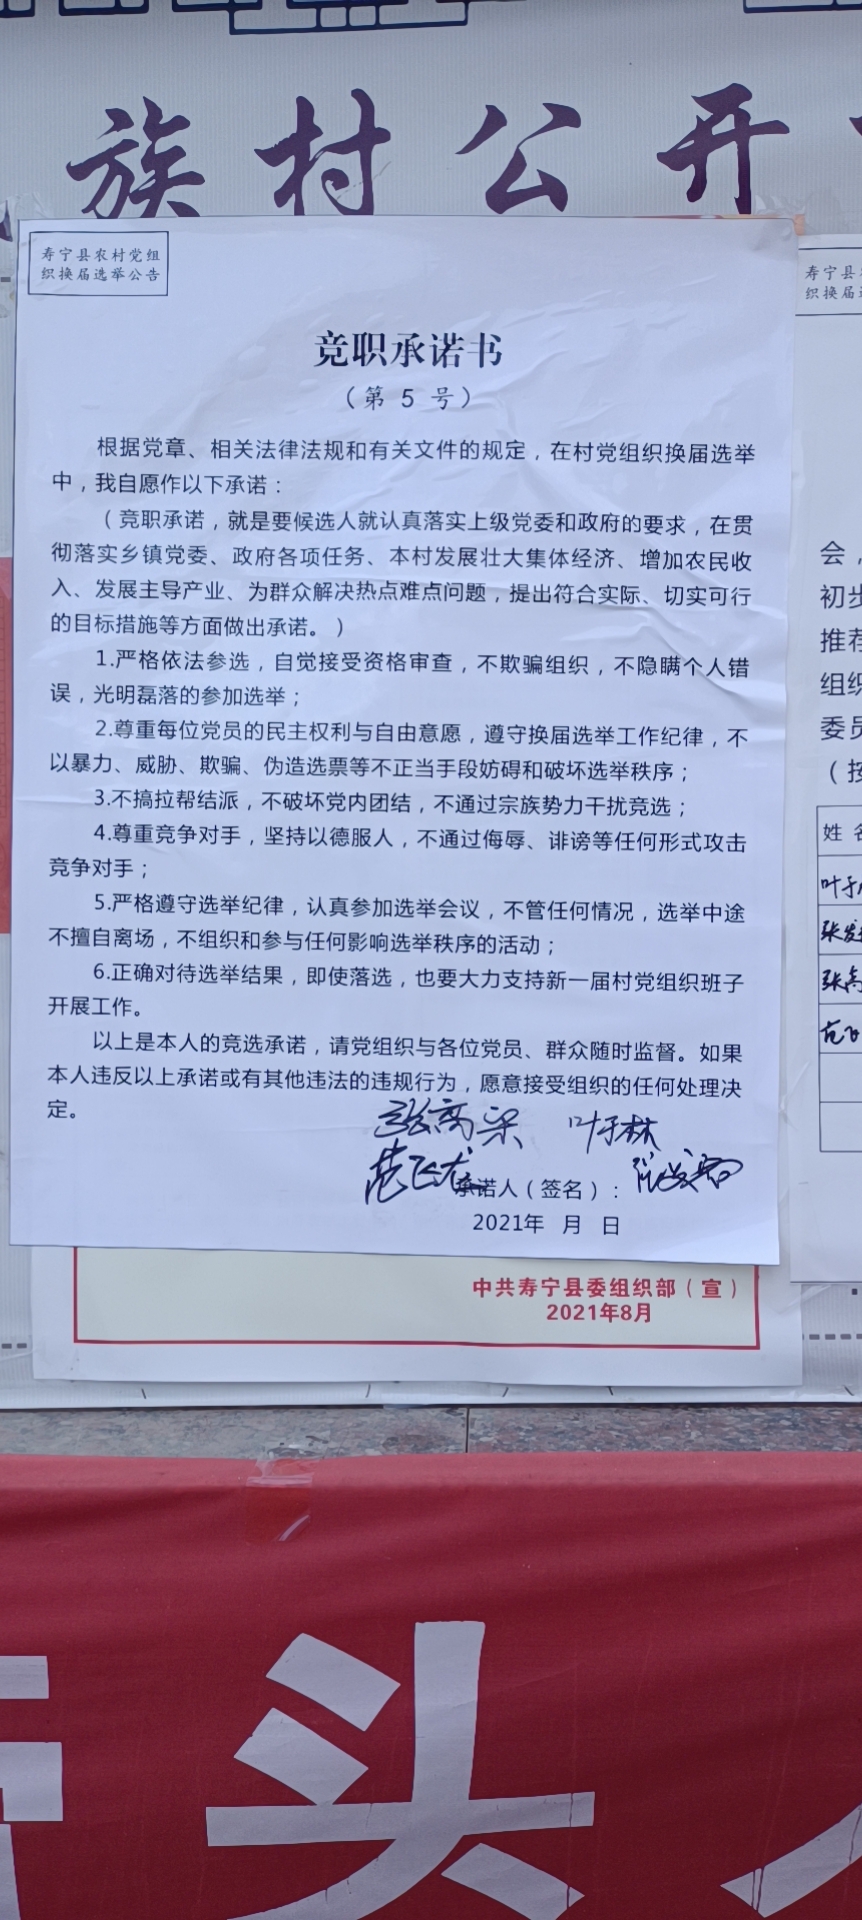 族村公开
寿宁县农村党组
织换届选举公告
竞职承诺书
（第 5 号）
根据党章、相关法律法规和有关文件的规定，在村党组织换届选举
中，我自愿作以下承诺：
（竞职承诺，就是要候选人就认真落实上级党委和政府的要求，在贯
彻落实乡镇党委、政府各项任务、本村发展壮大集体经济、增加农民收
入、发展主导产业、为群众解决热点难点问题，提出符合实际、切实可行
的目标措施等方面做出承诺。）
1.严格依法参选，自觉接受资格审查，不欺骗组织，不隐瞒个人错
误，光明磊落的参加选举；
2.尊重每位党员的民主权利与自由意愿，遵守换届选举工作纪律，不
以暴力、威胁、欺骗、伪造选票等不正当手段妨碍和破坏选举秩序；
3.不搞拉帮结派，不破坏党内团结，不通过宗族势力干扰竞选；
4.尊重竞争对手，坚持以德服人，不通过侮辱、诽谤等任何形式攻击
竞争对手；
5.严格遵守选举纪律，认真参加选举会议，不管任何情况，选举中途
不擅自离场，不组织和参与任何影响选举秩序的活动；
6.正确对待选举结果，即使落选，也要大力支持新一届村党组织班子
开展工作。
以上是本人的竞选承诺，请党组织与各位党员、群众随时监督。如果
本人违反以上承诺或有其他违法的违规行为，愿意接受组织的任何处理决
定。
张高梁 叶于林
范飞龙
承诺人（签名）：
2021年 月 日
中共寿宁县委组织部（宣）
2021年8月
寿宁县
织换届
会，
初步
推荐
组织
委员
（按
姓 名
叶于
张发
张高
范飞
头